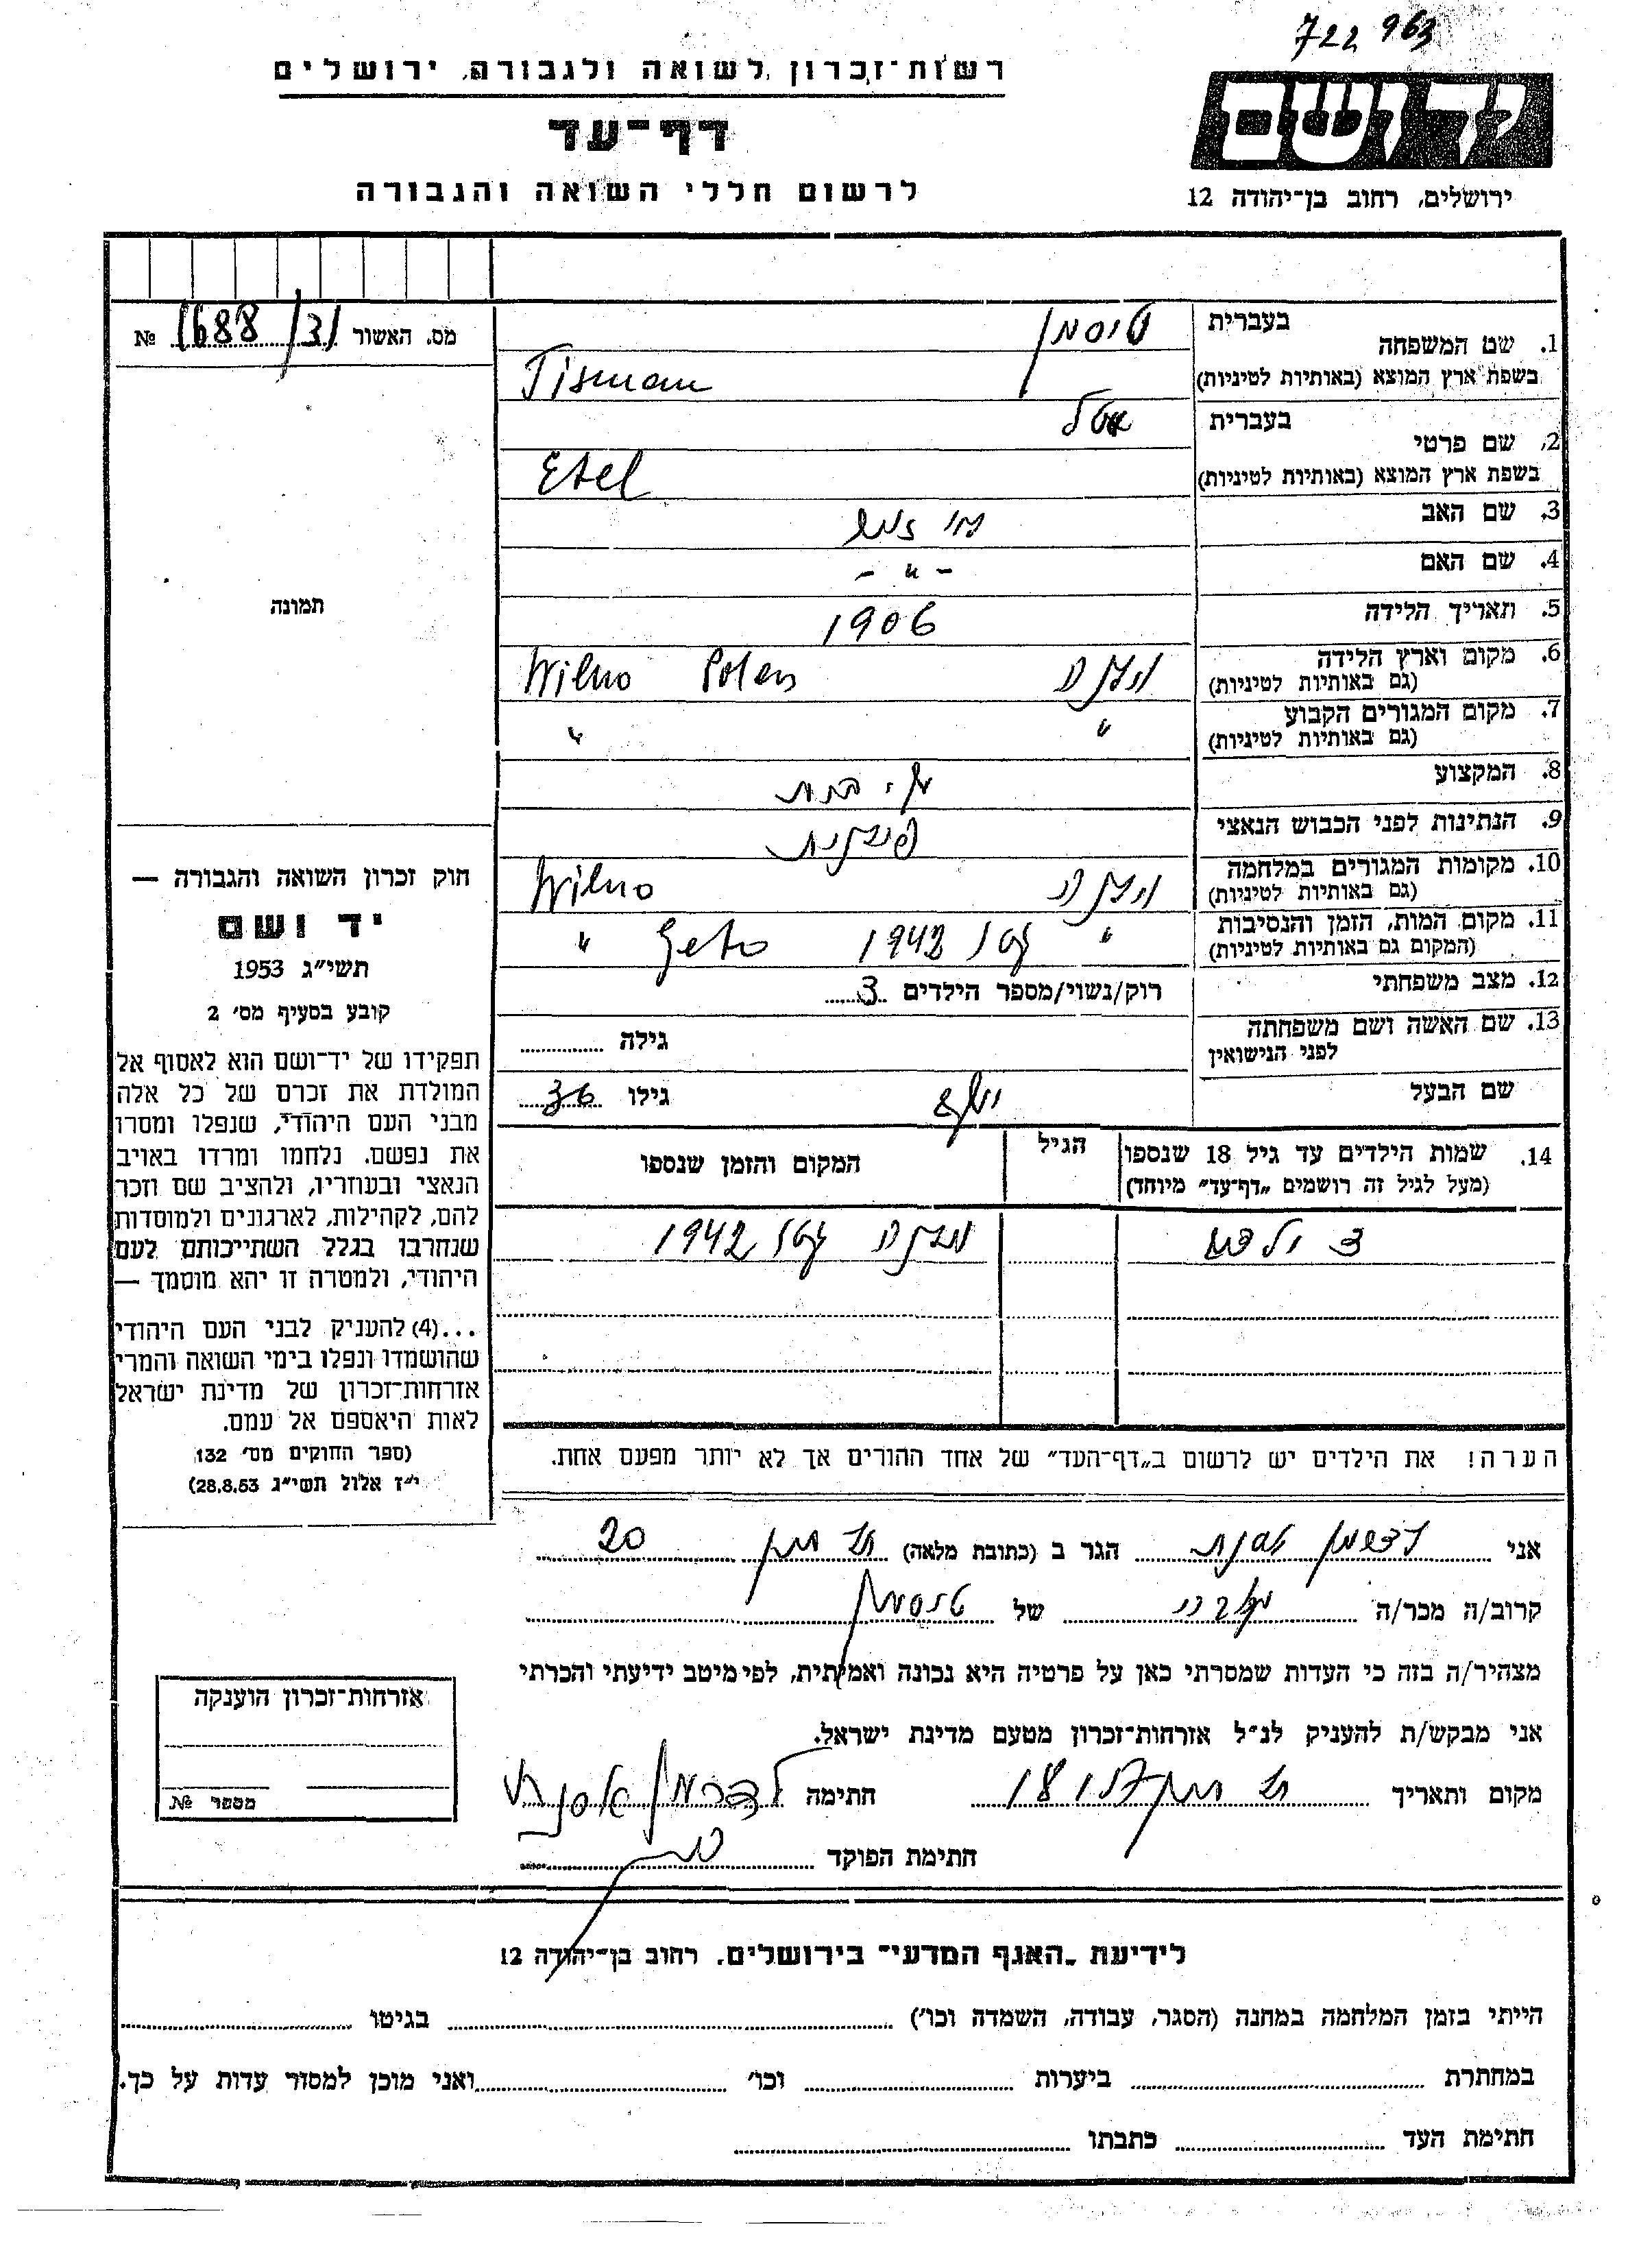 722 963
רשות־זכרון לשואה ולגבורה, ירושלים
דף־עד
לרשום חללי השואה והגבורה
יד ושם
ירושלים, רחוב בן־יהודה 12
מס. האשור 1688/31 №
1. שם המשפחה
בעברית
טיסמן
בשפת ארץ המוצא (באותיות לטיניות)
Tisman
2. שם פרטי
בעברית
אטל
בשפת ארץ המוצא (באותיות לטיניות)
Etel
3. שם האב
4. שם האם - " -
5. תאריך הלידה 1906
6. מקום וארץ הלידה
(גם באותיות לטיניות)
וילנה Wilno Polen
7. מקום המגורים הקבוע
(גם באותיות לטיניות)
" "
8. המקצוע
9. הנתינות לפני הכבוש הנאצי פולנית
10. מקומות המגורים במלחמה
(גם באותיות לטיניות)
וילנה Wilno
11. מקום המות, הזמן והנסיבות
(המקום גם באותיות לטיניות)
" גטו 1942 Geto "
12. מצב משפחתי רוק/נשוי/מספר הילדים 3
13. שם האשה ושם משפחתה
לפני הנישואין
גילה
שם הבעל
גילו 36
14. שמות הילדים עד גיל 18 שנספו
(מעל לגיל זה רושמים "דף־עד" מיוחד)
הגיל
המקום והזמן שנספו
3 ילדים וילנה גטו 1942
תמונה
חוק זכרון השואה והגבורה —
יד ושם
תשי"ג 1953
קובע בסעיף מס' 2
תפקידו של יד־ושם הוא לאסוף אל
המולדת את זכרם של כל אלה
מבני העם היהודי, שנפלו ומסרו
את נפשם. נלחמו ומרדו באויב
הנאצי ובעוזריו, ולהציב שם וזכר
להם, לקהילות, לארגונים ולמוסדות
שנחרבו בגלל השתייכותם לעם
היהודי, ולמטרה זו יהא מוסמך —
...(4) להעניק לבני העם היהודי
שהושמדו ונפלו בימי השואה והמרי
אזרחות־זכרון של מדינת ישראל
לאות היאספם אל עמם.
(ספר החוקים מס' 132
י"ז אלול תשי"ג 28.8.53)
הערה! את הילדים יש לרשום ב"דף־העד" של אחד ההורים אך לא יותר מפעם אחת.
אני הגר ב (כתובת מלאה) 20
קרוב/ה מכר/ה של טיסמן
מצהיר/ה בזה כי העדות שמסרתי כאן על פרטיה היא נכונה ואמיתית, לפי מיטב ידיעתי והכרתי
אני מבקש/ת להעניק לנ"ל אזרחות־זכרון מטעם מדינת ישראל.
מקום ותאריך חתימה
חתימת הפוקד
אזרחות־זכרון הוענקה
מספר №
לידיעת "האגף המדעי" בירושלים. רחוב בן־יהודה 12
הייתי בזמן המלחמה במחנה (הסגר, עבודה, השמדה וכו') בגיטו
במחתרת ביערות וכו' ואני מוכן למסור עדות על כך.
חתימת העד כתבתו